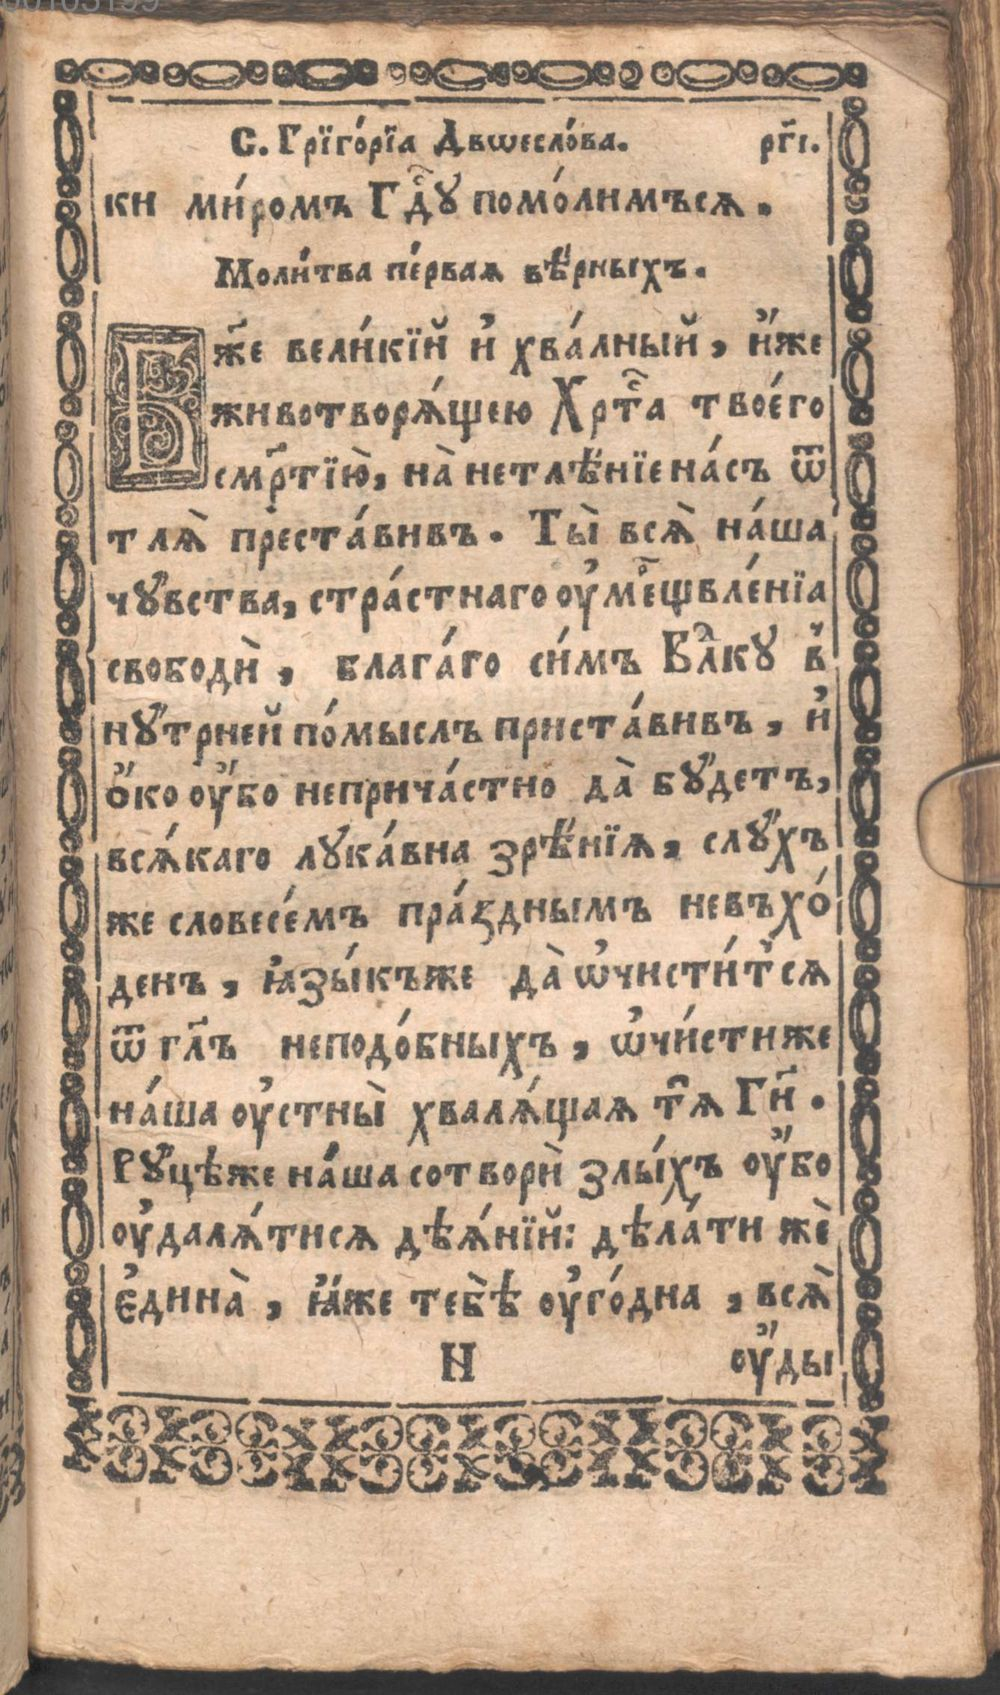 00103199
С. Грїго́рїа Двѡесло́ва. рг҃і.
ки ми́ромъ Гдⷭ҇ꙋ помо́лимъсѧ.
Моли́тва пе́рваѧ вѣ́рныхъ.
Бж҃е вели́кїй и҆ хва́лный, и҆́же
животворѧ́щею Хрⷭ҇та твое́го
смр҃тїю̀, на̀ нетлѣ́нїе на́съ ѿ
тлѧ̀ преста́вивъ. Ты̀ всѧ̀ на́ша
чꙋ́вства, стра́стнаго оу҆ме҃щвле́нїа
свободѝ, блага́го си́мъ Влⷣкꙋ в̾
нꙋ́трней по́мыслъ приста́вивъ, и҆
ѻ҆́ко оу҆́бо неприча́стно да̀ бꙋ́детъ,
всѧ́каго лꙋка́вна зрѣ́нїѧ, слꙋ́хъ
же словесе́мъ пра́ꙁднымъ невъхо́
денъ, ꙗ҆зы́къже да̀ ѡ҆чисти́тсѧ
ѿ гл҃ъ неподо́бныхъ, ѡ҆чи́стиже
на́ша оу҆стны̀ хвалѧ́щаѧ тѧ Гн҃.
Рꙋ́цѣже на́ша сотворѝ злы́хъ оу҆́бо
оу҆далѧ́тисѧ дѣѧ́нїй: дѣла́ти жѐ
є҆дина̀, ꙗ҆́же тебѣ̀ оу҆го́дна, всѧ̀
Н оу҆́ды